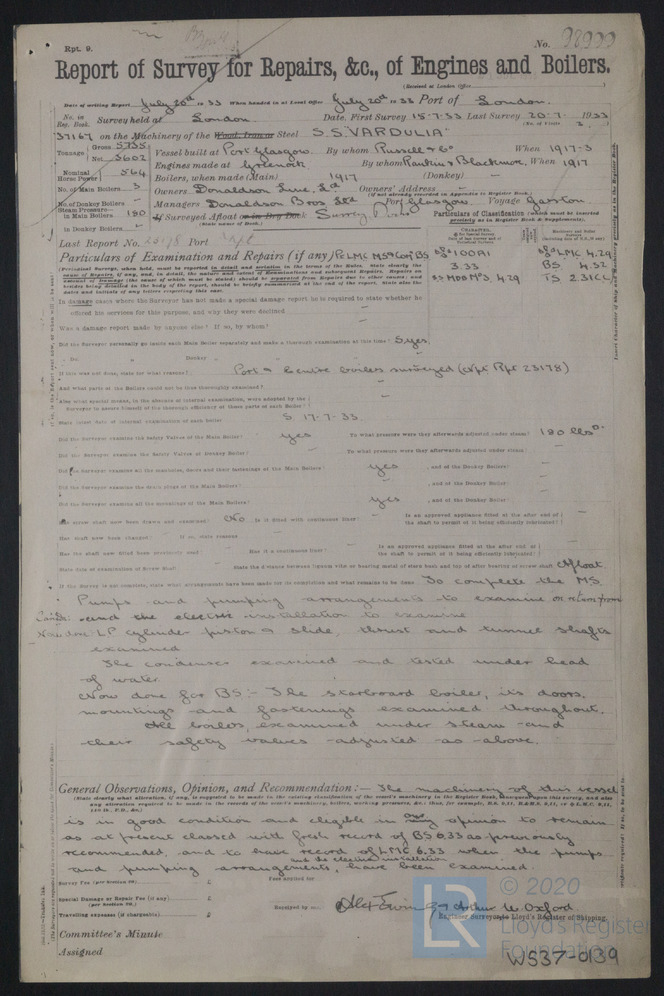 Rpt. 9.
No. 98999
Report of Survey for Repairs, &c., of Engines and Boilers.
(Received at London Office
Date of writing Report July 20th 1933 When handed in at Local Office July 20th 1933 Port of London.
No. in Reg. Book. Survey held at London Date, First Survey 15-7-33 Last Survey 20-7-1933
(No. of Visits 3.)
37167 on the Machinery of the Wood, Iron or Steel S.S. "VARDULIA"
Tonnage Gross 5735 Net 3602
Vessel built at Port Glasgow. By whom Russell & Co When 1917-3
Engines made at Greenock By whom Rankin & Blackmore, When 1917
Nominal Horse Power 564
Boilers, when made (Main) 1917 (Donkey) -
No. of Main Boilers 3
Owners Donaldson Line, Ld Owners' Address -
(If not already recorded in Appendix to Register Book.)
No. of Donkey Boilers -
Managers Donaldson Bros Ld Port Glasgow. Voyage Garston
Steam Pressure in Main Boilers 180
in Donkey Boilers -
If Surveyed Afloat or in Dry Dock Surrey Docks
(State name of Dock.)
Particulars of Classification (which must be inserted precisely as in Register Book & Supplements).
Last Report No. 23178 Port
Particulars of Examination and Repairs (if any) Pt LMC MS & Cont BS
100A1
LMC 4.29
3.33
BS 4.32
MS 4.29
TS 2.31CL
In damage cases where the Surveyor has not made a special damage report he is required to state whether he
offered his services for this purpose, and why they were declined -
Was a damage report made by anyone else? If so, by whom? -
Did the Surveyor personally go inside each Main Boiler separately and make a thorough examination at this time? S. yes.
Do. " Donkey " -
If this was not done, state for what reasons? Port & Centre boilers surveyed (Rpt 23178)
And what parts of the Boilers could not be thus thoroughly examined? -
Also what special means, in the absence of internal examination, were adopted by the
Surveyor to assure himself of the thorough efficiency of those parts of each Boiler? -
State latest date of internal examination of each boiler S 17-7-33
Did the Surveyor examine the Safety Valves of the Main Boiler? yes To what pressure were they afterwards adjusted under steam? 180 lbs
Did the Surveyor examine the Safety Valves of Donkey Boiler? - To what pressure were they afterwards adjusted under steam? -
Did the Surveyor examine all the manholes, doors and their fastenings of the Main Boilers? yes, and of the Donkey Boilers? -
Did the Surveyor examine the drain plugs of the Main Boilers? -, and of the Donkey Boiler? -
Did the Surveyor examine all the mountings of the Main Boilers? yes, and of the Donkey Boiler? -
Has screw shaft now been drawn and examined? No Is it fitted with continuous liner? - Is an approved appliance fitted at the after end of
the shaft to permit of it being efficiently lubricated? -
Has shaft now been changed? - If so, state reasons -
Has the shaft now fitted been previously used? - Has it a continuous liner? - Is an approved appliance fitted at the after end of
the shaft to permit of it being efficiently lubricated? -
State date of examination of Screw Shaft - State the distance between lignum vitæ or bearing metal of stern bush and top of after bearing of screw shaft Afloat.
If the Survey is not complete, state what arrangements have been made for its completion and what remains to be done To complete the MS.
Pumps and pumping arrangements to examine on return from
Canada. and the electric installation to examine
Now done:- LP cylinder piston & slide, thrust and tunnel shafts
examined
The condenser examined and tested under head
of water.
Now done for BS:- The starboard boiler, its doors,
mountings and fastenings examined throughout.
All boilers, examined under steam and
their safety valves adjusted as above.
General Observations, Opinion, and Recommendation:- The machinery of this vessel
is in good condition and eligible in our opinion to remain
as at present classed with fresh record of BS 6.33 as previously
recommended, and to have record of LMC 6.33 when the pumps
and pumping arrangements, and the electric installation have been examined.
Survey Fee (per Section 29) £
Fees applied for
Special Damage or Repair Fee (if any) £
(per Section 29.)
Travelling expenses (if chargeable) £
Received by me,
Alex Ewing & Arthur W. Oxford
Engineer Surveyor to Lloyd's Register of Shipping.
Committee's Minute
Assigned
© 2020
LR
Lloyd's Register
Foundation
WS37-0139